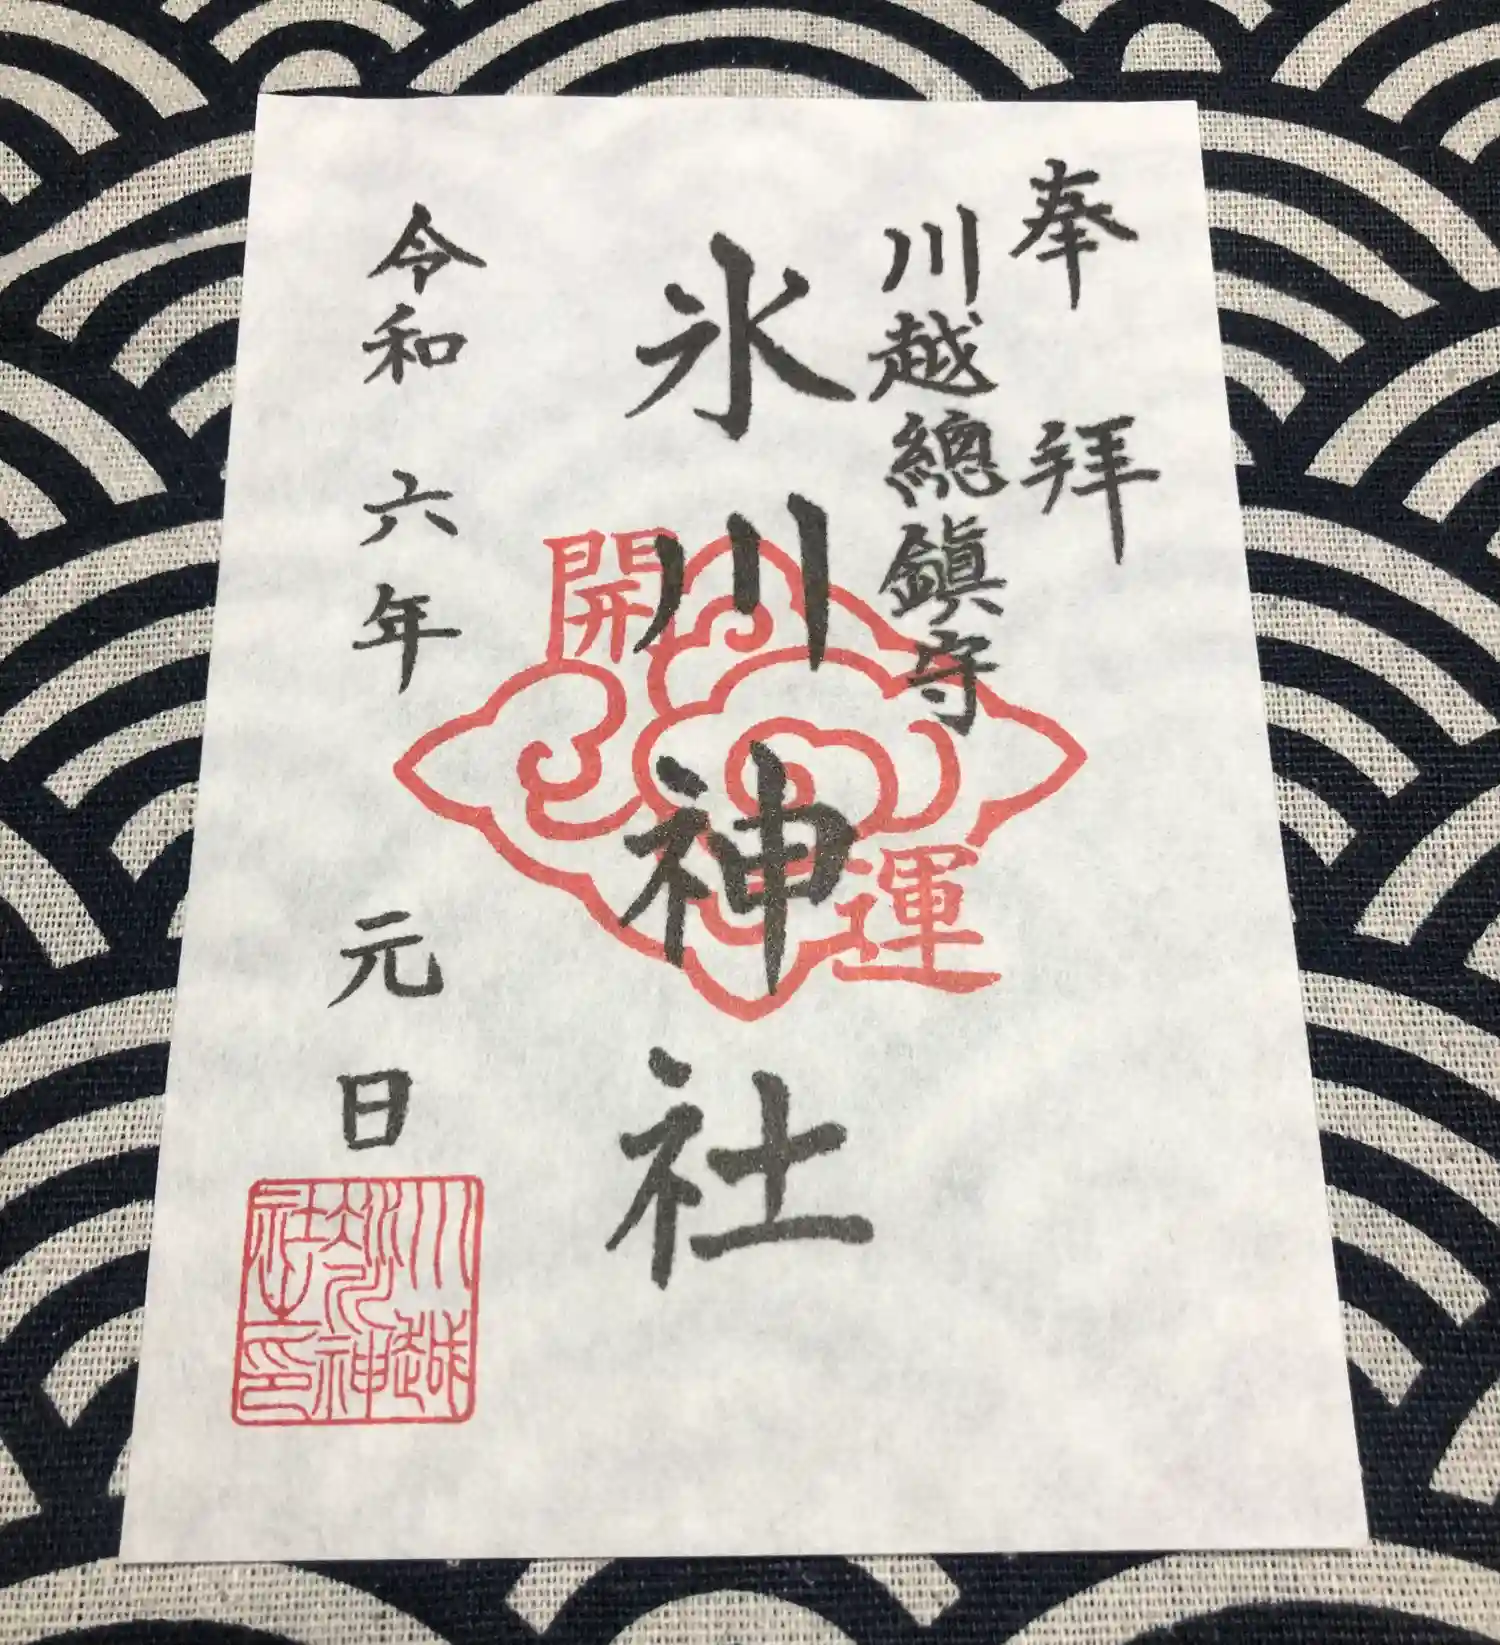 奉拝
川越總鎮守
氷川神社
開運
令和六年 元日
川越氷川神社之印